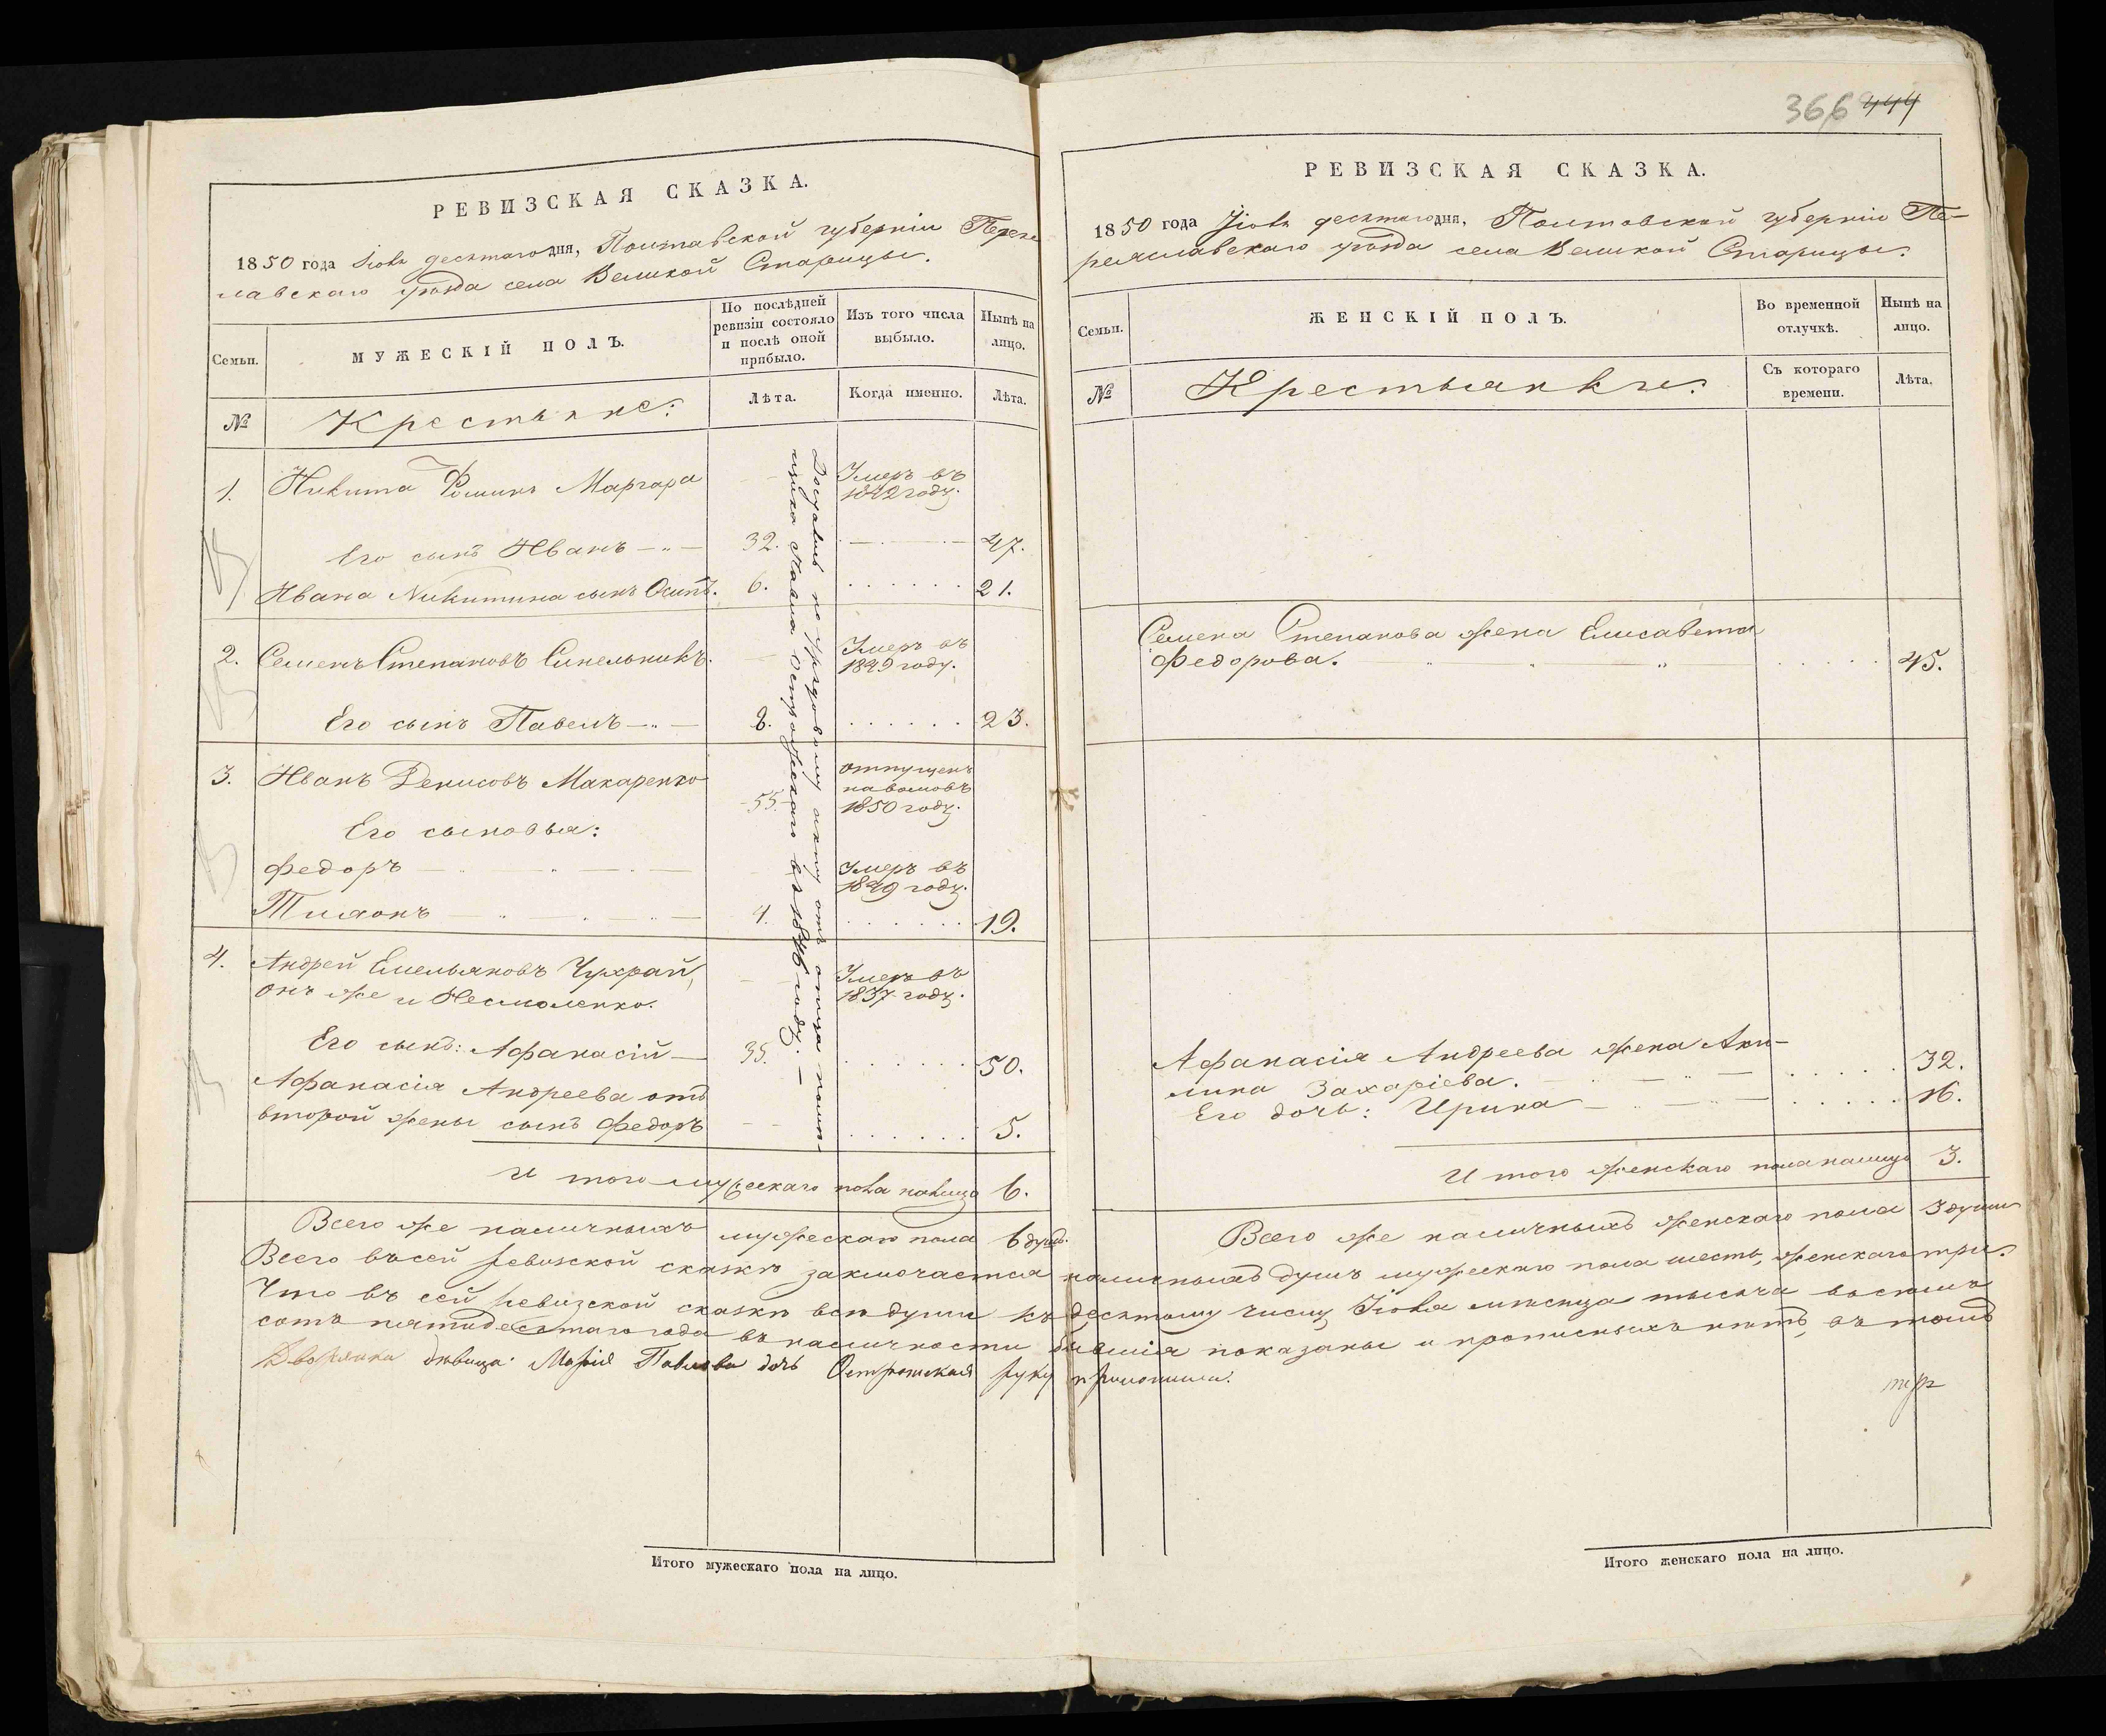 366 444
РЕВИЗСКАЯ СКАЗКА.
1850 года Іюня десятаго дня, Полтавской губерніи Перея
славскаго уѣзда села Великой Старицы.
Семьи.
МУЖЕСКІЙ ПОЛЪ.
По послѣдней
ревизіи состояло
и послѣ оной
прибыло.
Изъ того числа
выбыло.
Нынѣ на
лицо.
№
Крестьяне:
Лѣта.
Когда именно.
Лѣта.
1. Никита Фоминъ Маргара - Умеръ въ
1842 году.
Его сынъ Иванъ 32. 47.
Ивана Никитина сынъ Осипъ. 6. 21.
2. Семенъ Степановъ Синельникъ. - Умеръ въ
1849 году.
Его сынъ Павелъ 8. 23.
3. Иванъ Денисовъ Макаренко 55. отпущенъ
на волю въ
1850 году.
Его сыновья:
Федоръ Умеръ въ
1849 году.
Тимонъ 4. 19.
4. Андрей Емельяновъ Чухрай, - Умеръ въ
онъ же и Несмоленко. 1837 году.
Его сынъ: Афанасій 35. 50.
Афанасія Андреева отъ
второй жены сынъ Федоръ - 5.
Достались по урядовому акту отъ отца помѣ-
щика Павла Остро́жскаго въ 1846 году.
И того мужескаго пола налицо 6.
Всего же наличныхъ мужескаго пола 6 душъ.
РЕВИЗСКАЯ СКАЗКА.
1850 года Іюня десятаго дня, Полтавской губерніи Пе-
реяславскаго уѣзда села Великой Старицы.
Семьи.
ЖЕНСКІЙ ПОЛЪ.
Во временной
отлучкѣ.
Нынѣ на
лицо.
№
Крестьянки:
Съ котораго
времени.
Лѣта.
Семена Степанова жена Елисавета
Федорова. 45.
Афанасія Андреева жена Аки-
лина Захаріева. 32.
Его дочь: Ирина 16.
И того женскаго пола налицо 3.
Всего же наличныхъ женскаго пола 3 души
Всего въ сей ревизской сказкѣ заключается наличныхъ душъ мужескаго пола шесть, женскаго три.
Что въ сей ревизской сказкѣ всѣ души къ десятому числу Іюня мѣсяца тысяча восемь
сотъ пятидесятаго года въ наличности бывшія показаны и прописныхъ нѣтъ, въ томъ
Дворянка дѣвица Марія Павлова дочь Острожская руку приложила.
Итого мужескаго пола на лицо.
Итого женскаго пола на лицо.